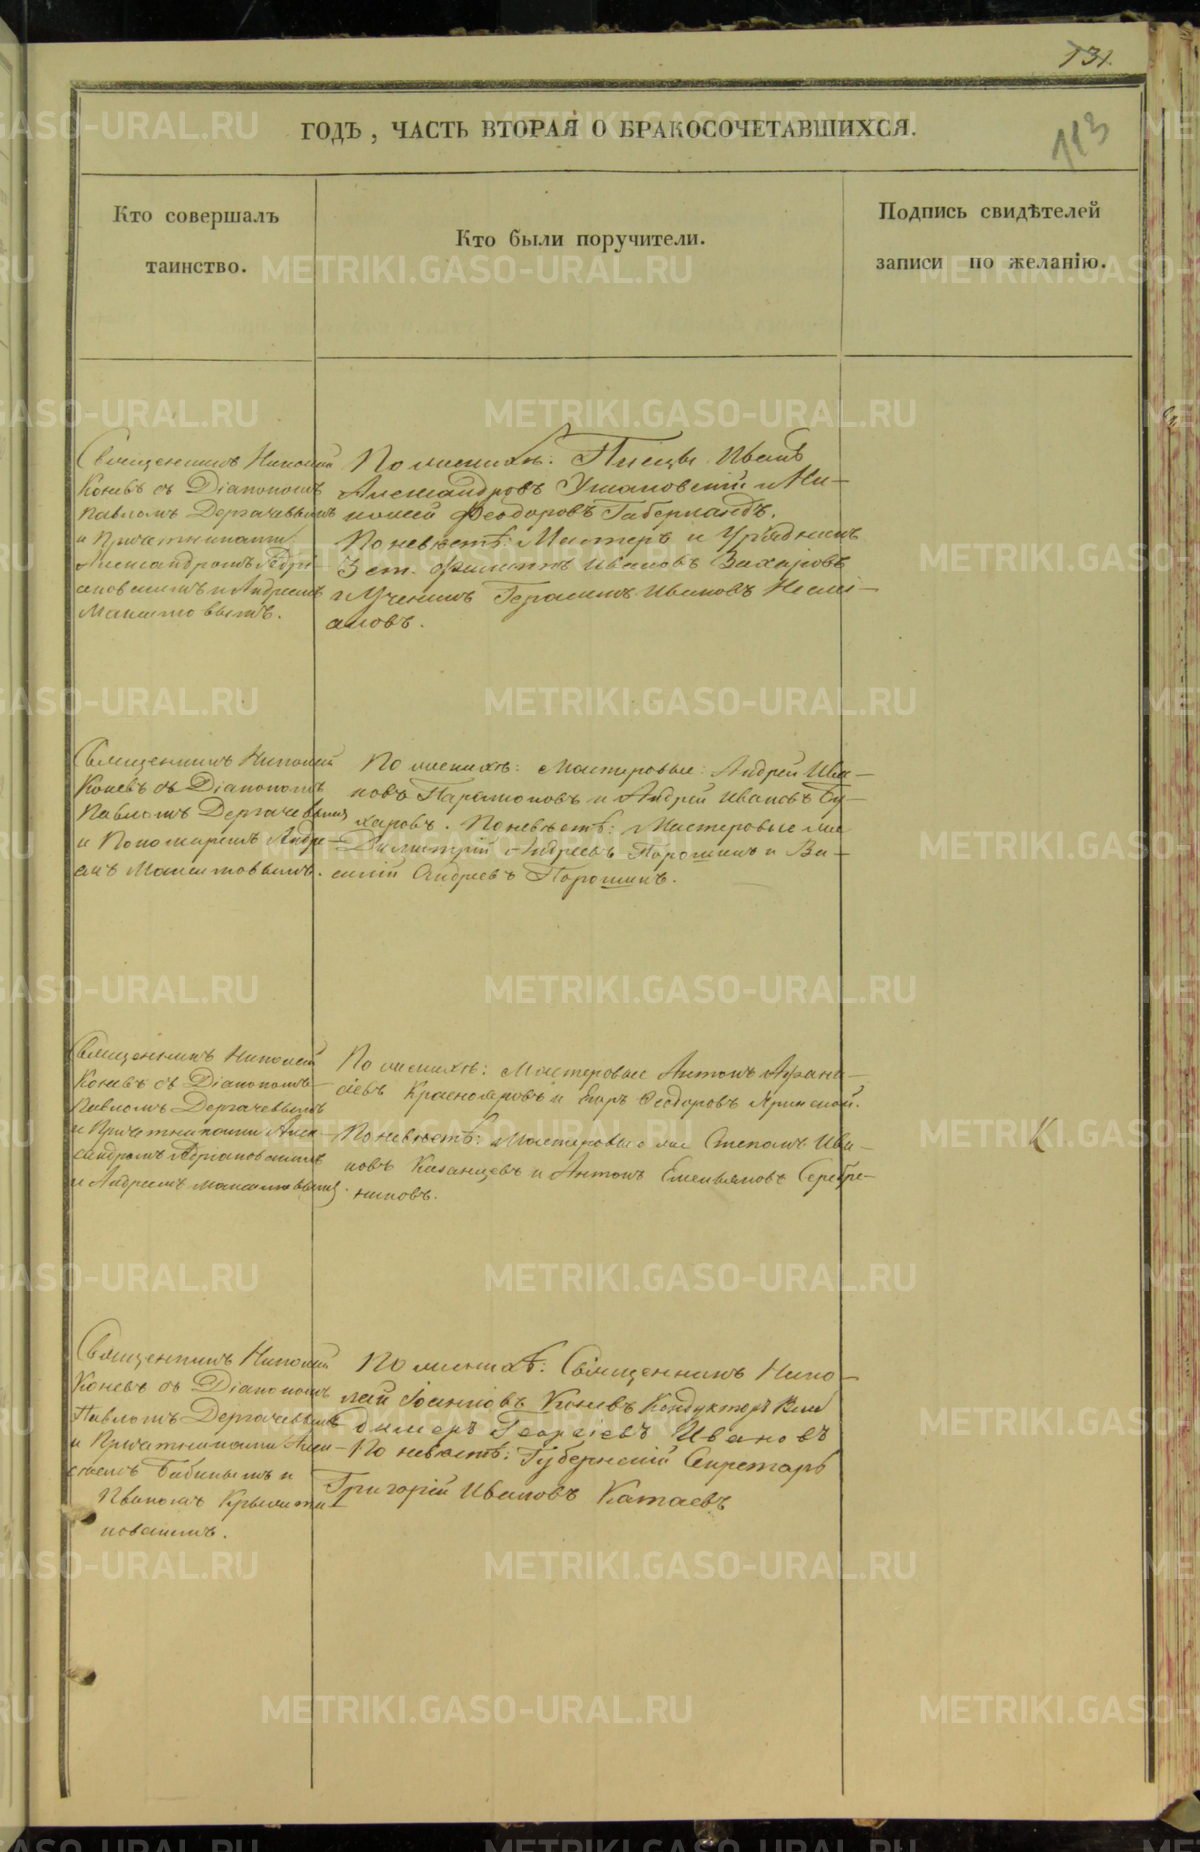 131.
113
ГОДЪ, ЧАСТЬ ВТОРАЯ О БРАКОСОЧЕТАВШИХСЯ.
Кто совершалъ
таинство.
Кто были поручители.
Подпись свидѣтелей
записи по желанію.
Священникъ Николай
Коневъ съ Діакономъ
Павломъ Дергачевымъ
и Причетниками
Александромъ Адрі-
ановскимъ и Андреемъ
Мамитовымъ.
По женихѣ: Писцы Иванъ
Александровъ Ушаковскій и Ни-
колай Феодоровъ Габерландъ.
По невѣстѣ: Мастеръ и Урядникъ
3 ст. Филиппъ Ивановъ Захаровъ
и Ученикъ Герасимъ Ивановъ
Священникъ Николай
Коневъ съ Діакономъ
Павломъ Дергачевымъ
и Пономаремъ Андре-
емъ Мамитовымъ.
По женихѣ: Мастеровые: Андрей Ива-
новъ Парамоновъ и Андрей Ивановъ Бу-
харовъ. По невѣстѣ: Мастеровые же
Димитрій Андреевъ Порошинъ и Ва-
силій Андреевъ Порошинъ.
Священникъ Николай
Коневъ съ Діакономъ
Павломъ Дергачевымъ
и Причетниками Алек-
сандромъ Адріановскимъ
и Андреемъ Мамитовымъ.
По женихѣ: Мастеровые Антонъ Афана-
сіевъ Краснояровъ и Егоръ Феодоровъ
По невѣстѣ: Мастеровые же Степанъ Ива-
новъ Казанцевъ и Антонъ Емельяновъ Серебре-
никовъ.
К
Священникъ Николай
Коневъ съ Діакономъ
Павломъ Дергачевымъ
и Причетниками Алек-
сѣемъ Бабинымъ и
Иваномъ
По женихѣ: Священникъ Нико-
лай Іоанновъ Коневъ Кондукторъ Вла
димеръ Георгіевъ Ивановъ
По невѣстѣ: Губернскій Секретарь
Григорій Ивановъ Катаевъ
METRIKI.GASO-URAL.RU